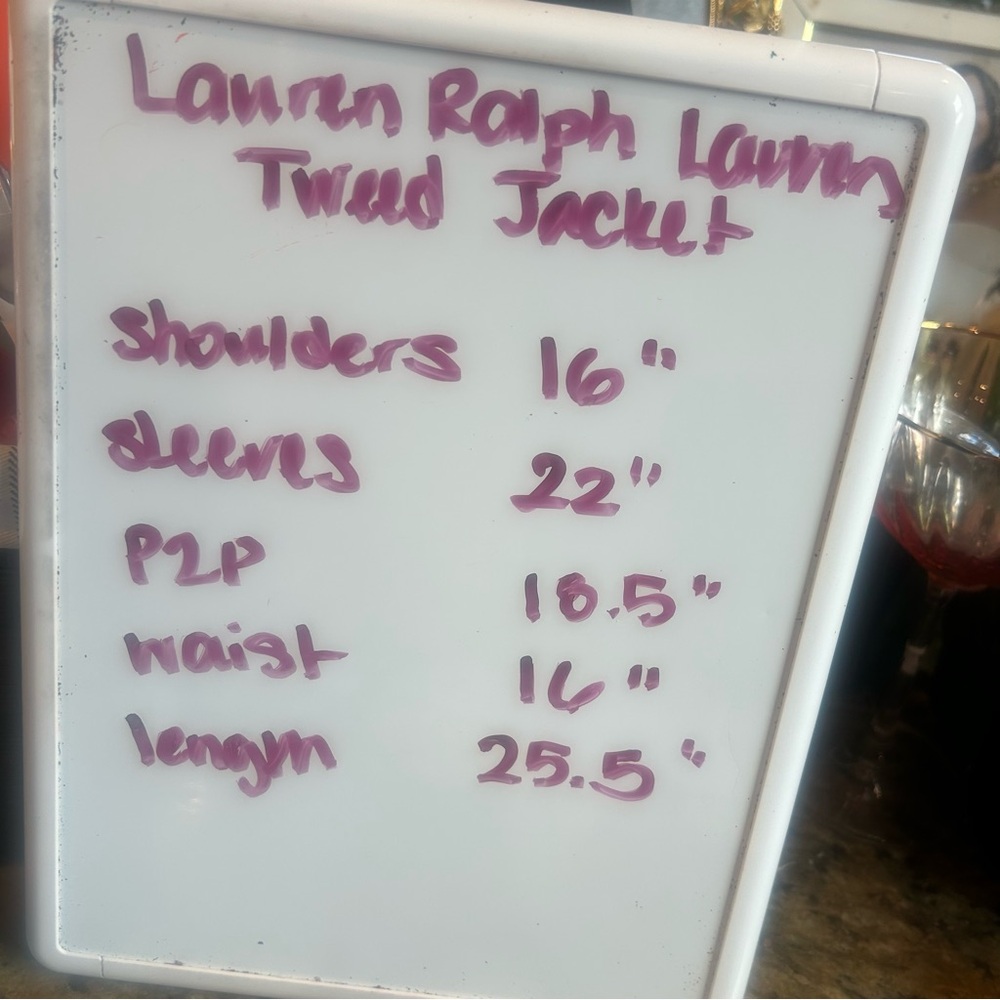 Lauren Ralph Lauren
Tweed Jacket
shoulders 16"
sleeves 22"
P2P 18.5"
waist 16"
length 25.5"